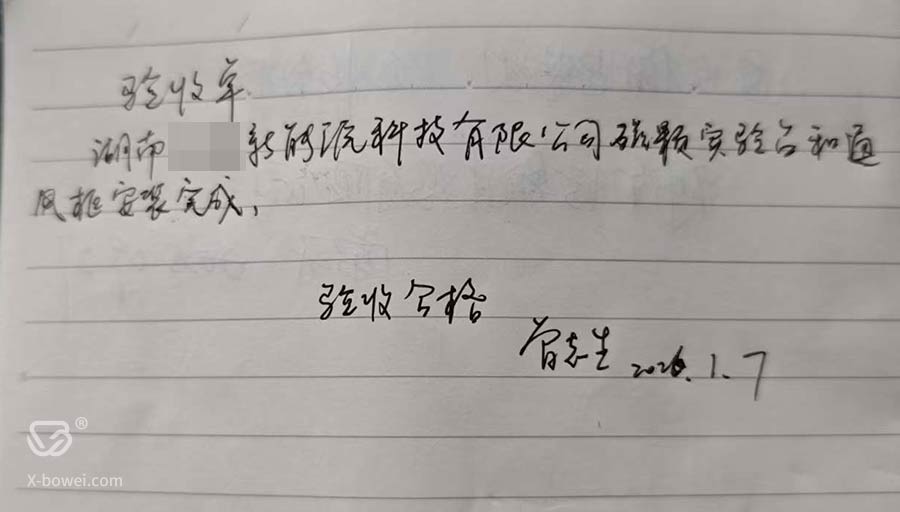 验收单
湖南 新能源科技有限公司 实验台和通
风柜安装完成,
验收合格
曾志生 2026.1.7
®
X-bowei.com